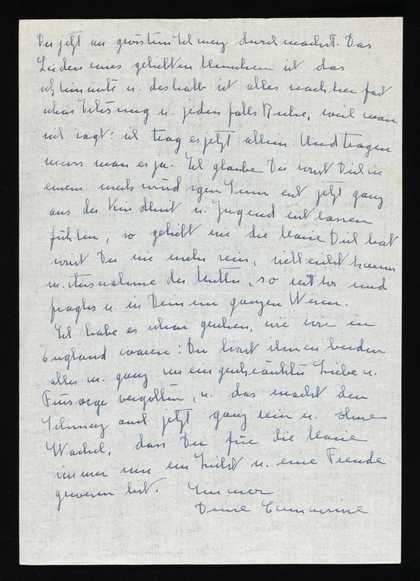 Du jetzt an grösstem Schmerz durchmachst. Das
Leiden eines geliebten Menschen ist das
schlimmste u. deshalb ist alles nachher fast
schon Erlösung u. jedenfalls Ruhe, weil man
sich sagt: ich trag es jetzt allein. Und tragen
muss man es ja. Ich glaube Du wirst Dich in
einem merkwürdigen Sinn erst jetzt ganz
aus der Kindheit u. Jugend entlassen
fühlen, so geliebt wie die Mama Dich hat
wirst Du nie mehr sein, vielleicht kaum
m. Ausnahme der Mutter, so
fraglos u. in Deinem ganzen Wesen.
Ich habe es schon gesehen, wie wir in
England waren: Du hast ihnen beiden
alles m. ganz uneingeschränkter Liebe u.
Fürsorge vergolten, u. das macht den
Schmerz auch jetzt ganz rein u. ohne
Stachel, dass Du für die Mama
immer nur ein Licht u. eine Freude
gewesen bist. Immer
Deine